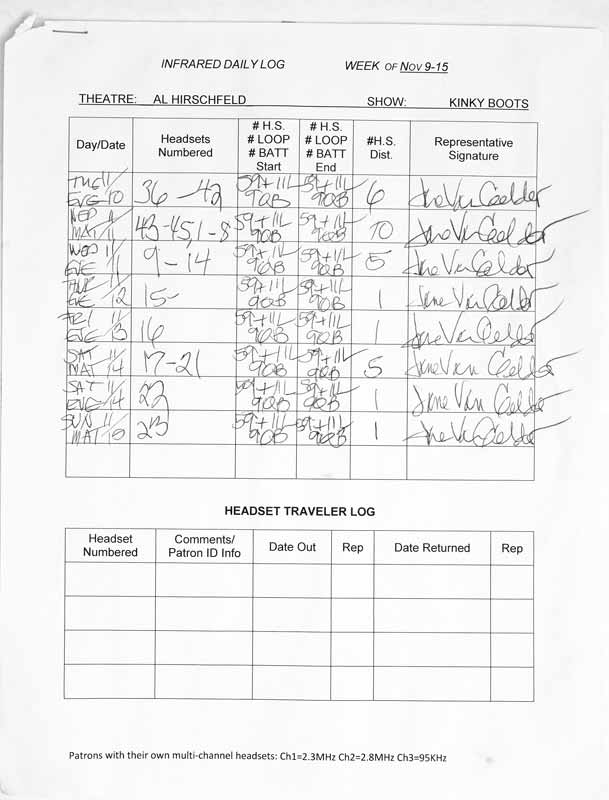 INFRARED DAILY LOG WEEK OF NOV 9-15
THEATRE: AL HIRSCHFELD SHOW: KINKY BOOTS
Day/Date Headsets Numbered # H.S. # LOOP # BATT Start # H.S. # LOOP # BATT End #H.S. Dist. Representative Signature
TUE 11/ EVE 10 36 - 42 59+11L 90B 59+11L 90B 6 Jane Van Gelder
WED 11 MAT 11 43-45, 1-8 59+11L 90B 59+11L 90B 10 Jane Van Gelder
WED 11/ EVE 11 9-14 59+11L 90B 59+11L 90B 5 Jane Van Gelder
THUR 11/ EVE 12 15- 59+11L 90B 59+11L 90B 1 Jane Van Gelder
FRI 11/ EVE 13 16 59+11L 90B 59+11L 90B 1 Jane Van Gelder
SAT 11/ MAT 14 17-21 59+11L 90B 59+11L 90B 5 Jane Van Gelder
SAT 11/ EVE 14 22 59+11L 90B 59+11L 90B 1 Jane Van Gelder
SUN 11/ MAT 15 23 59+11L 90B 59+11L 90B 1 Jane Van Gelder
HEADSET TRAVELER LOG
Headset Numbered Comments/ Patron ID Info Date Out Rep Date Returned Rep
Patrons with their own multi-channel headsets: Ch1=2.3MHz Ch2=2.8MHz Ch3=95KHz